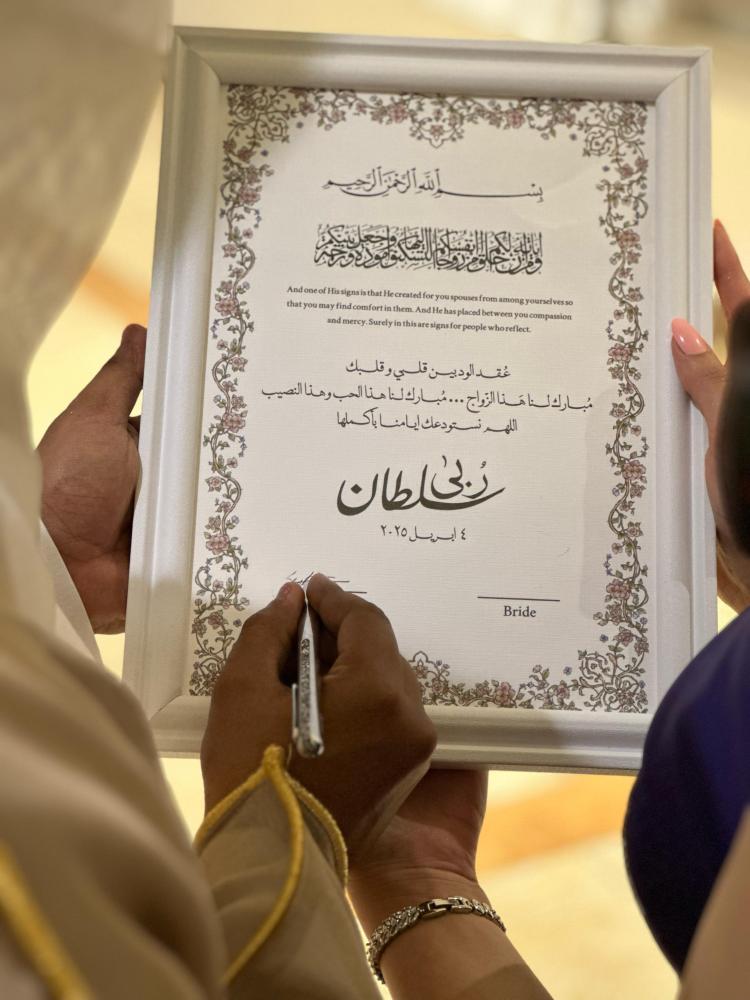 بِسْمِ ٱللَّهِ ٱلرَّحْمَٰنِ ٱلرَّحِيمِ
And one of His signs is that He created for you spouses from among yourselves so
that you may find comfort in them. And He has placed between you compassion
and mercy. Surely in this are signs for people who reflect.
عُقد الود بين قلبي و قلبك
مُبارك لنا هَذا الزَواج ... مُبارك لنا هذا الحب وهذا النصيب
اللهم نستودعك ايامنا بأكملها
رُبى
سلطان
٤ ابريل ٢٠٢٥
Bride